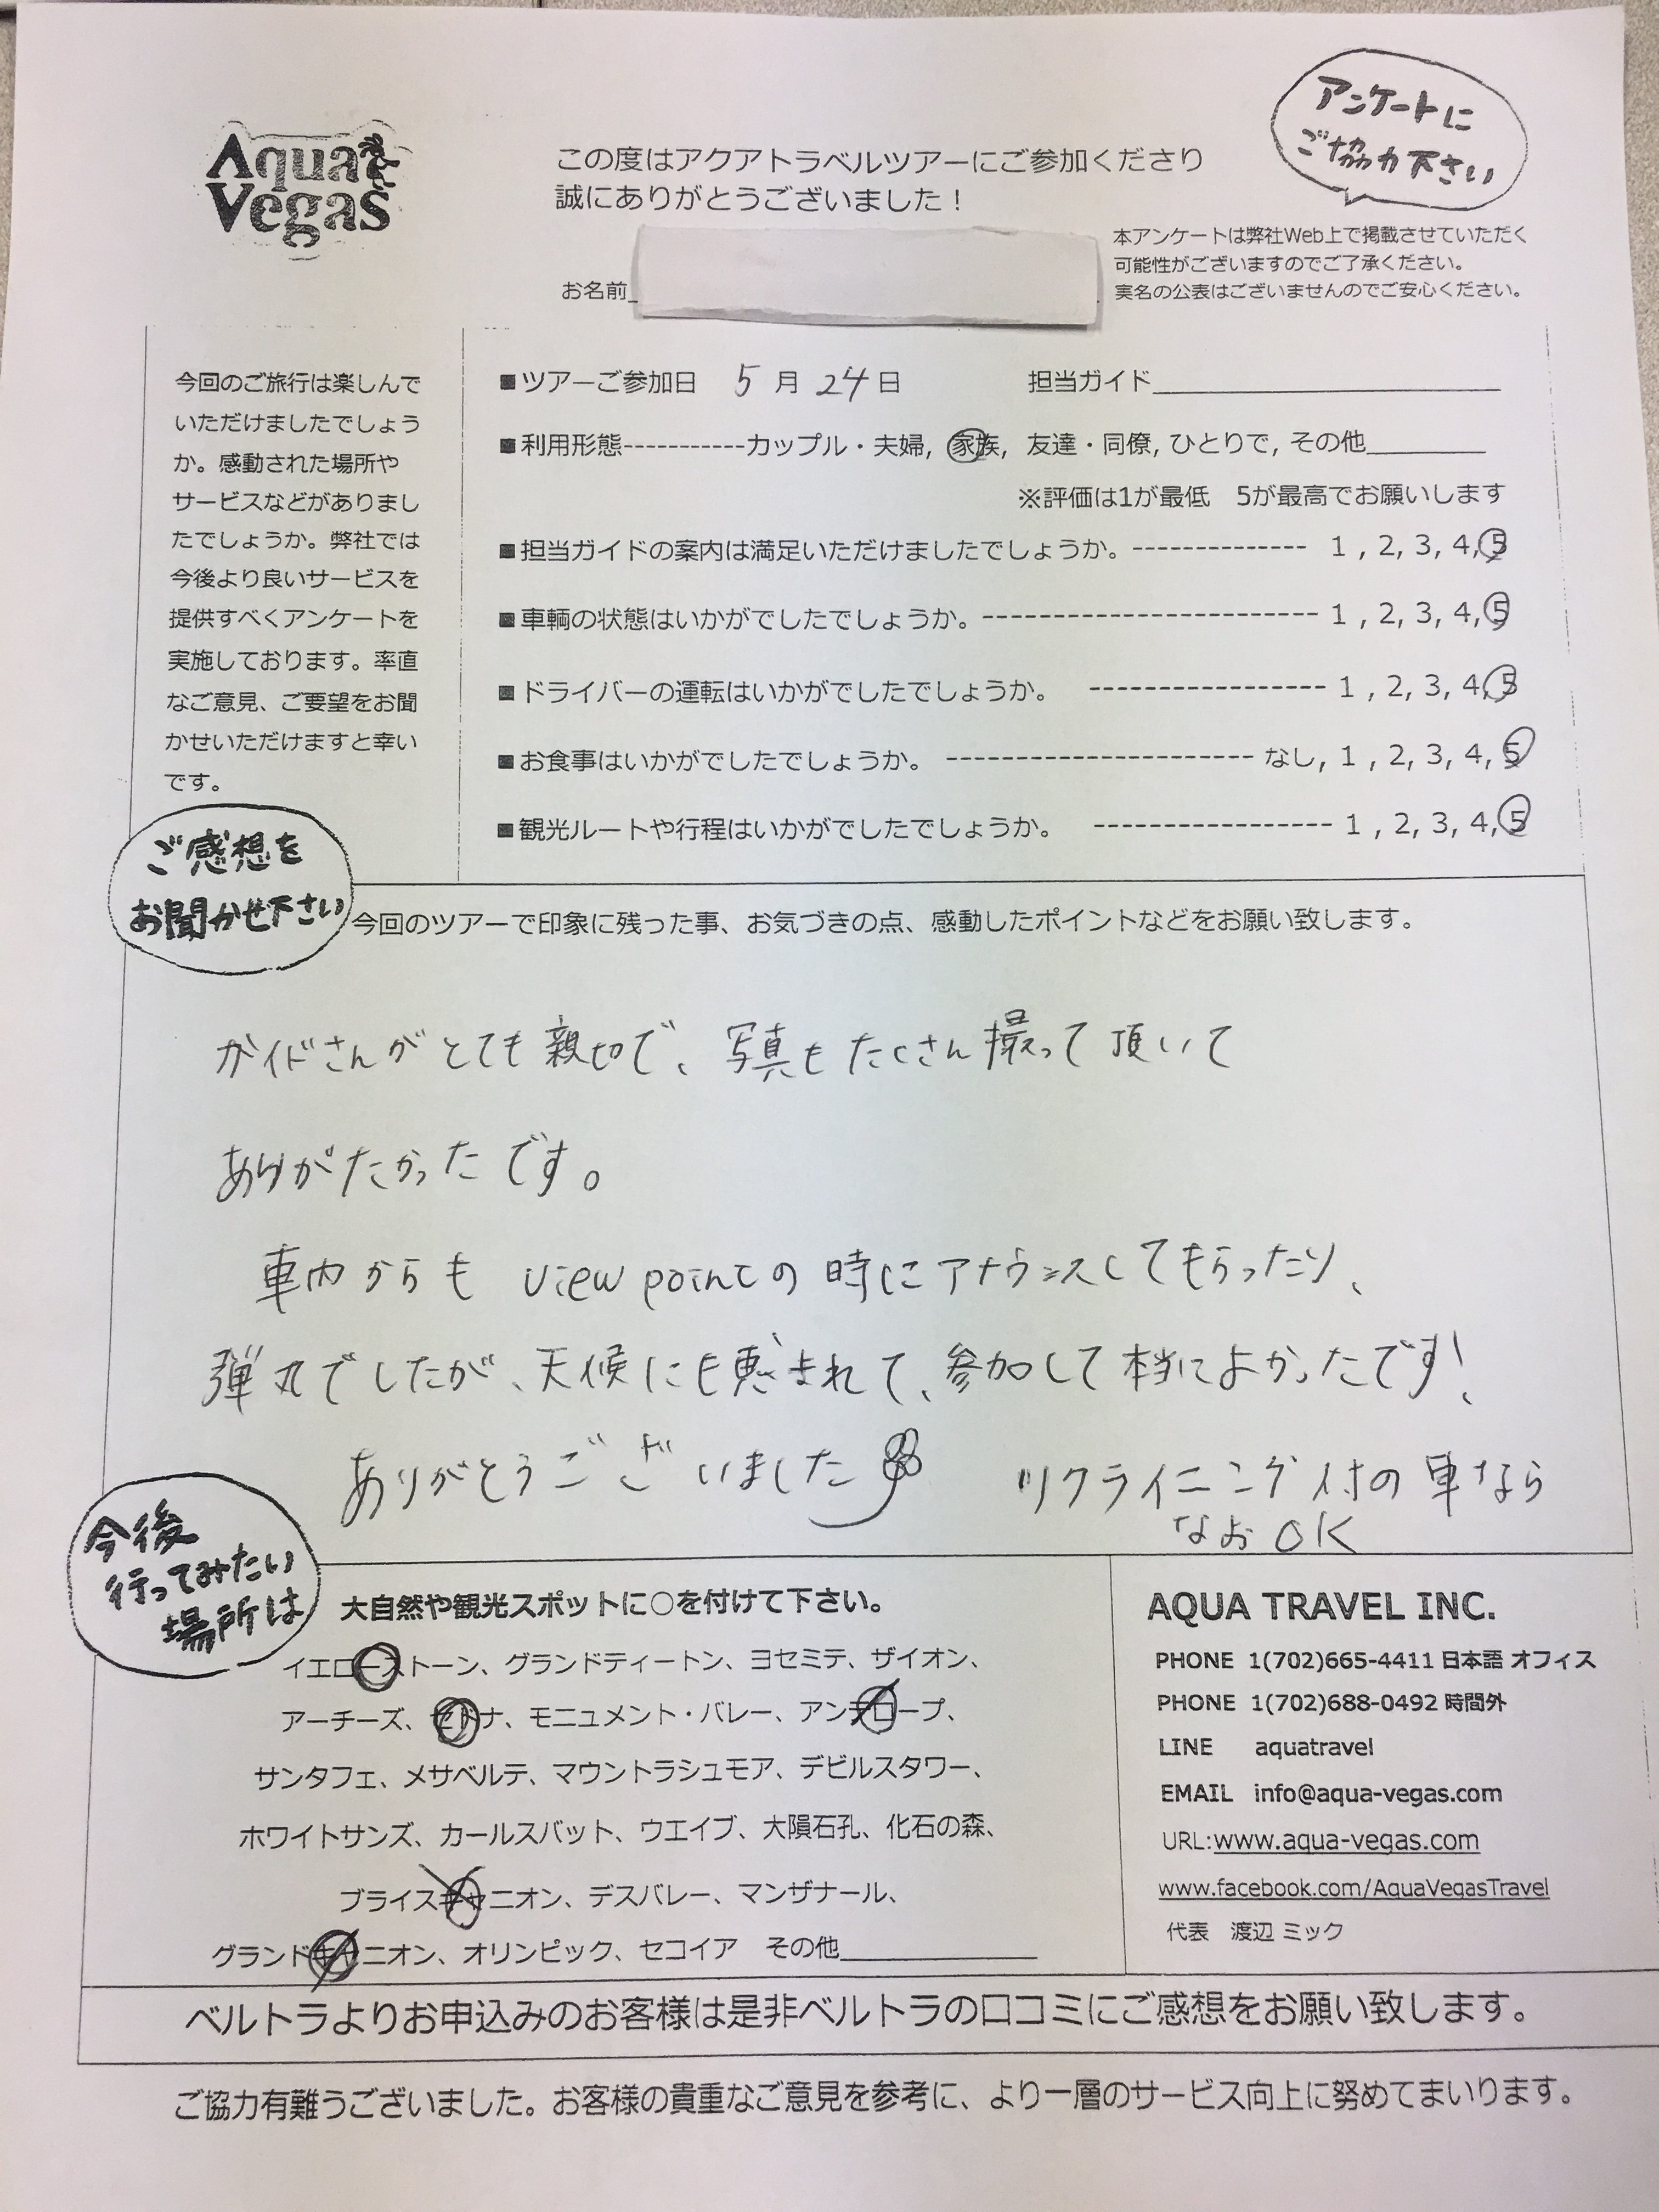 Aqua
Vegas
アンケートに
ご協力下さい
この度はアクアトラベルツアーにご参加くださり
誠にありがとうございました！
お名前
本アンケートは弊社Web上で掲載させていただく
可能性がございますのでご了承ください。
実名の公表はございませんのでご安心ください。
今回のご旅行は楽しんで
いただけましたでしょう
か。感動された場所や
サービスなどがありまし
たでしょうか。弊社では
今後より良いサービスを
提供すべくアンケートを
実施しております。率直
なご意見、ご要望をお聞
かせいただけますと幸い
です。
■ツアーご参加日 5月24日 担当ガイド
■利用形態-----------カップル・夫婦, 家族, 友達・同僚, ひとりで, その他
※評価は1が最低 5が最高でお願いします
■担当ガイドの案内は満足いただけましたでしょうか。-------------- 1 , 2, 3, 4, 5
■車輌の状態はいかがでしたでしょうか。--------------------------- 1 , 2, 3, 4, 5
■ドライバーの運転はいかがでしたでしょうか。 ------------------- 1 , 2, 3, 4, 5
■お食事はいかがでしたでしょうか。 ------------------------- なし, 1 , 2, 3, 4, 5
■観光ルートや行程はいかがでしたでしょうか。 ------------------- 1 , 2, 3, 4, 5
ご感想を
お聞かせ下さい
今回のツアーで印象に残った事、お気づきの点、感動したポイントなどをお願い致します。
ガイドさんがとても親切で、写真もたくさん撮って頂いて
ありがたかったです。
車内からも view pointの時にアナウンスしてもらったり、
弾丸でしたが、天候にも恵まれて、参加して本当によかったです！
ありがとうございました
リクライニング付の車なら
なおOK
今後
行ってみたい
場所は
大自然や観光スポットに○を付けて下さい。
イエローストーン、グランドティートン、ヨセミテ、ザイオン、
アーチーズ、セドナ、モニュメント・バレー、アンテロープ、
サンタフェ、メサベルテ、マウントラシュモア、デビルスタワー、
ホワイトサンズ、カールスバット、ウエイブ、大隕石孔、化石の森、
ブライスキャニオン、デスバレー、マンザナール、
グランドキャニオン、オリンピック、セコイア その他
AQUA TRAVEL INC.
PHONE 1(702)665-4411 日本語 オフィス
PHONE 1(702)688-0492 時間外
LINE aquatravel
EMAIL info@aqua-vegas.com
URL:www.aqua-vegas.com
www.facebook.com/AquaVegasTravel
代表 渡辺 ミック
ベルトラよりお申込みのお客様は是非ベルトラの口コミにご感想をお願い致します。
ご協力有難うございました。お客様の貴重なご意見を参考に、より一層のサービス向上に努めてまいります。